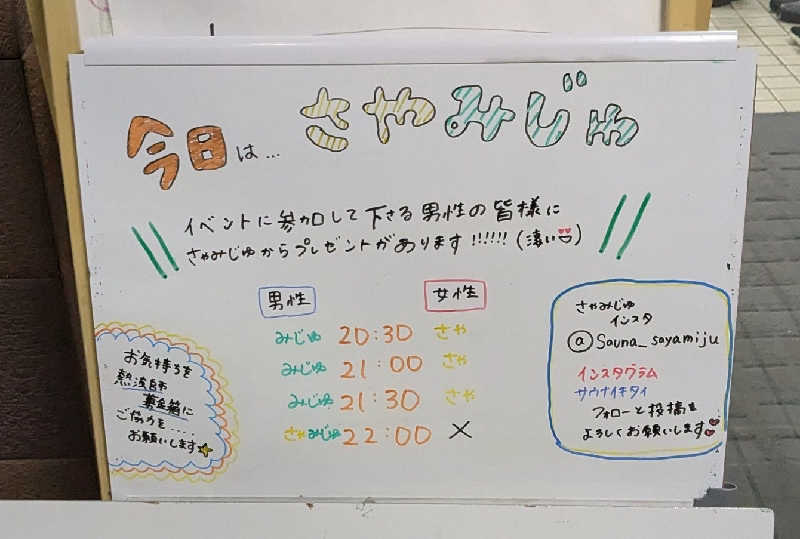 今日は... さやみじゅ
イベントに参加して下さる男性の皆様に
さやみじゅからプレゼントがあります!!!!!!
男性 女性
みじゅ 20:30 さや
みじゅ 21:00 さや
みじゅ 21:30 さや
さやみじゅ 22:00 ×
お気持ちを
熱波師
募金箱に
ご協力を......
お願いします
さやみじゅ
インスタ
@ Sauna_sayamiju
インスタグラム
サウナイキタイ
フォローと投稿を
よろしくお願いします